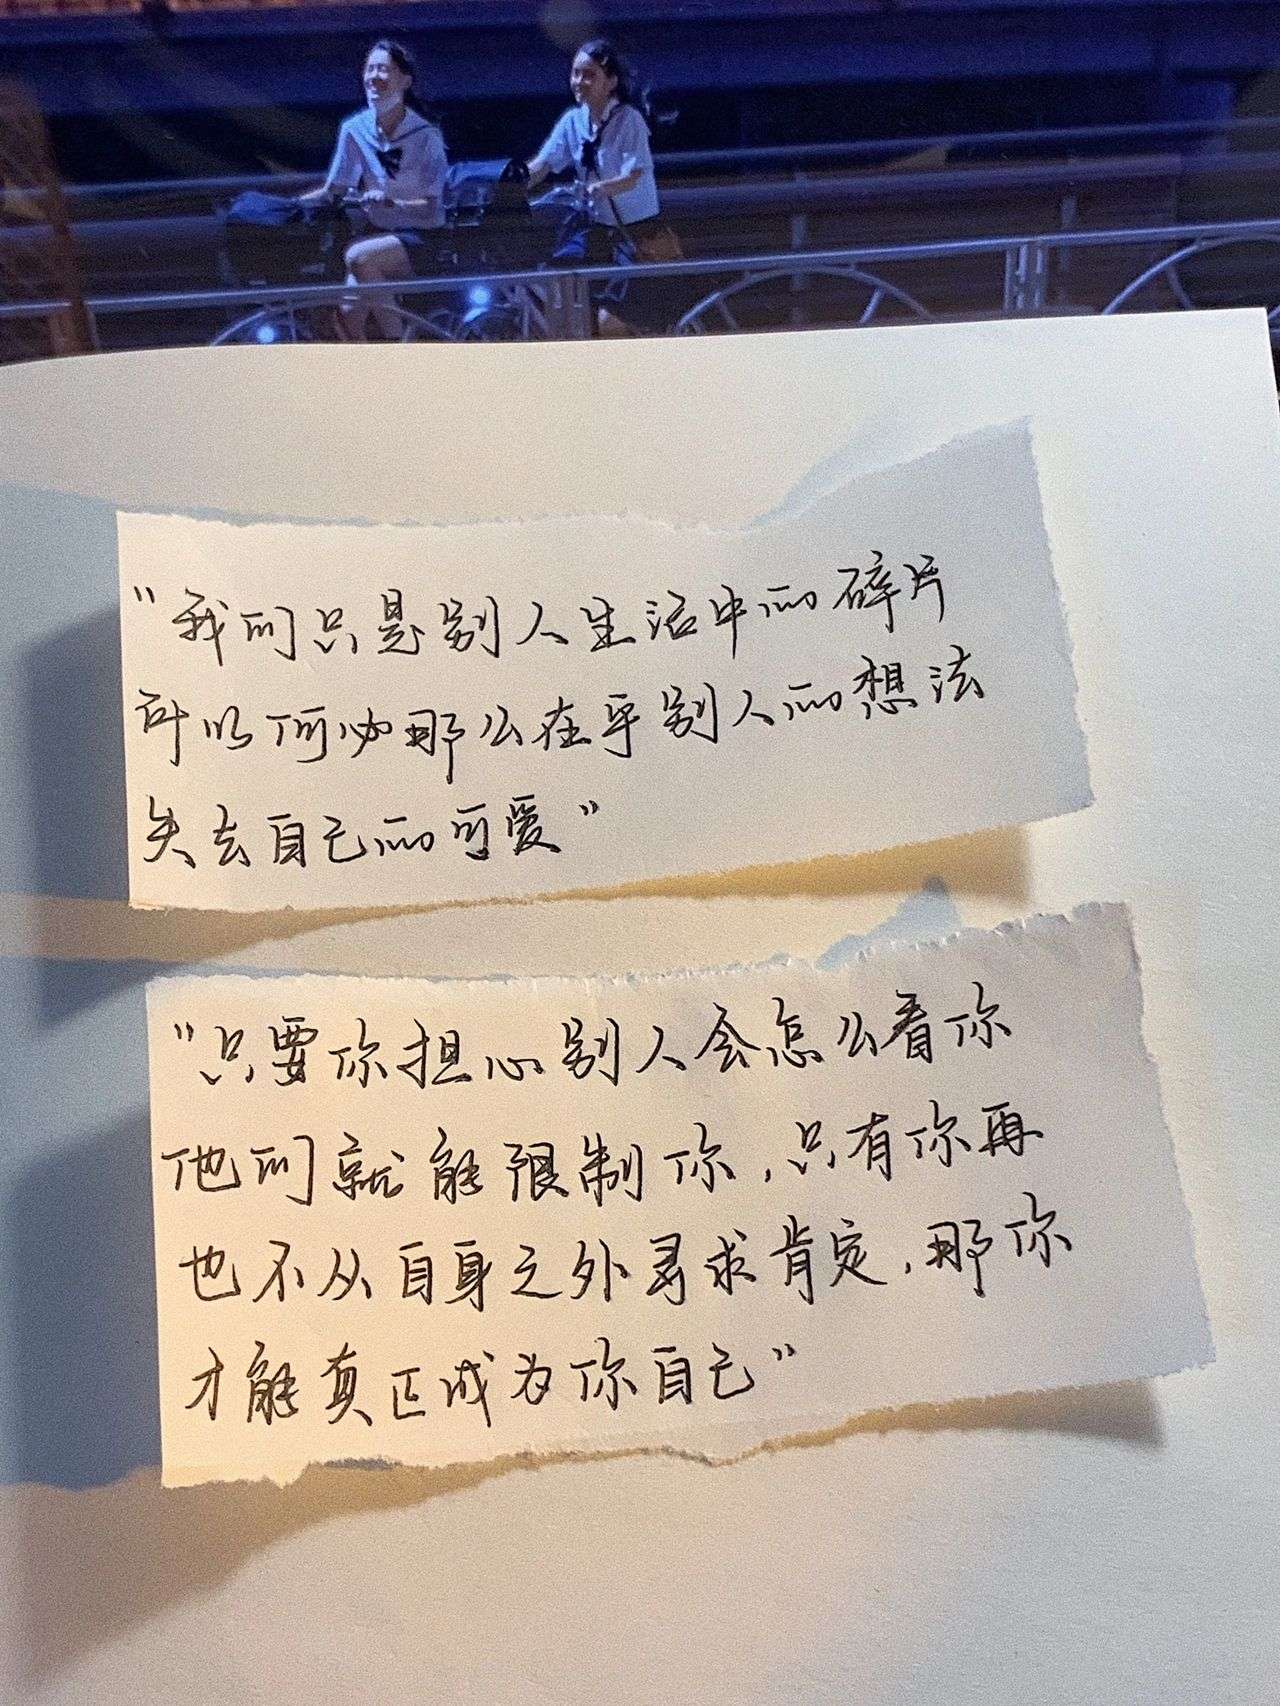 “我们只是别人生活中的碎片
所以何必那么在乎别人的想法
失去自己的可爱”
“只要你担心别人会怎么看你
他们就能限制你，只有你再
也不从自身之外寻求肯定，那你
才能真正成为你自己”